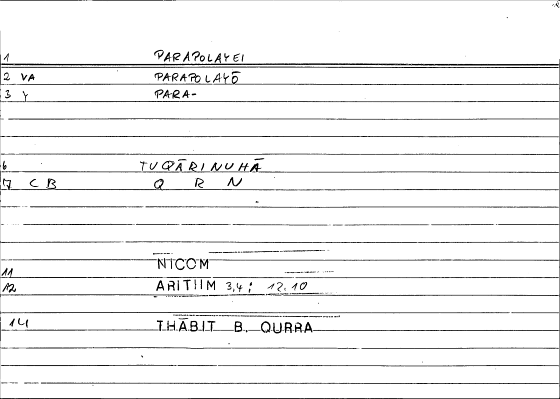 1 PARAPOLAYEI
2 VA PARAPOLAYŌ
3 Y PARA-
6 TUQĀRINUHĀ
7 CB Q R N
11 NICOM
12 ARITIIM 3,4; 12.10
14 THĀBIT B. QURRA